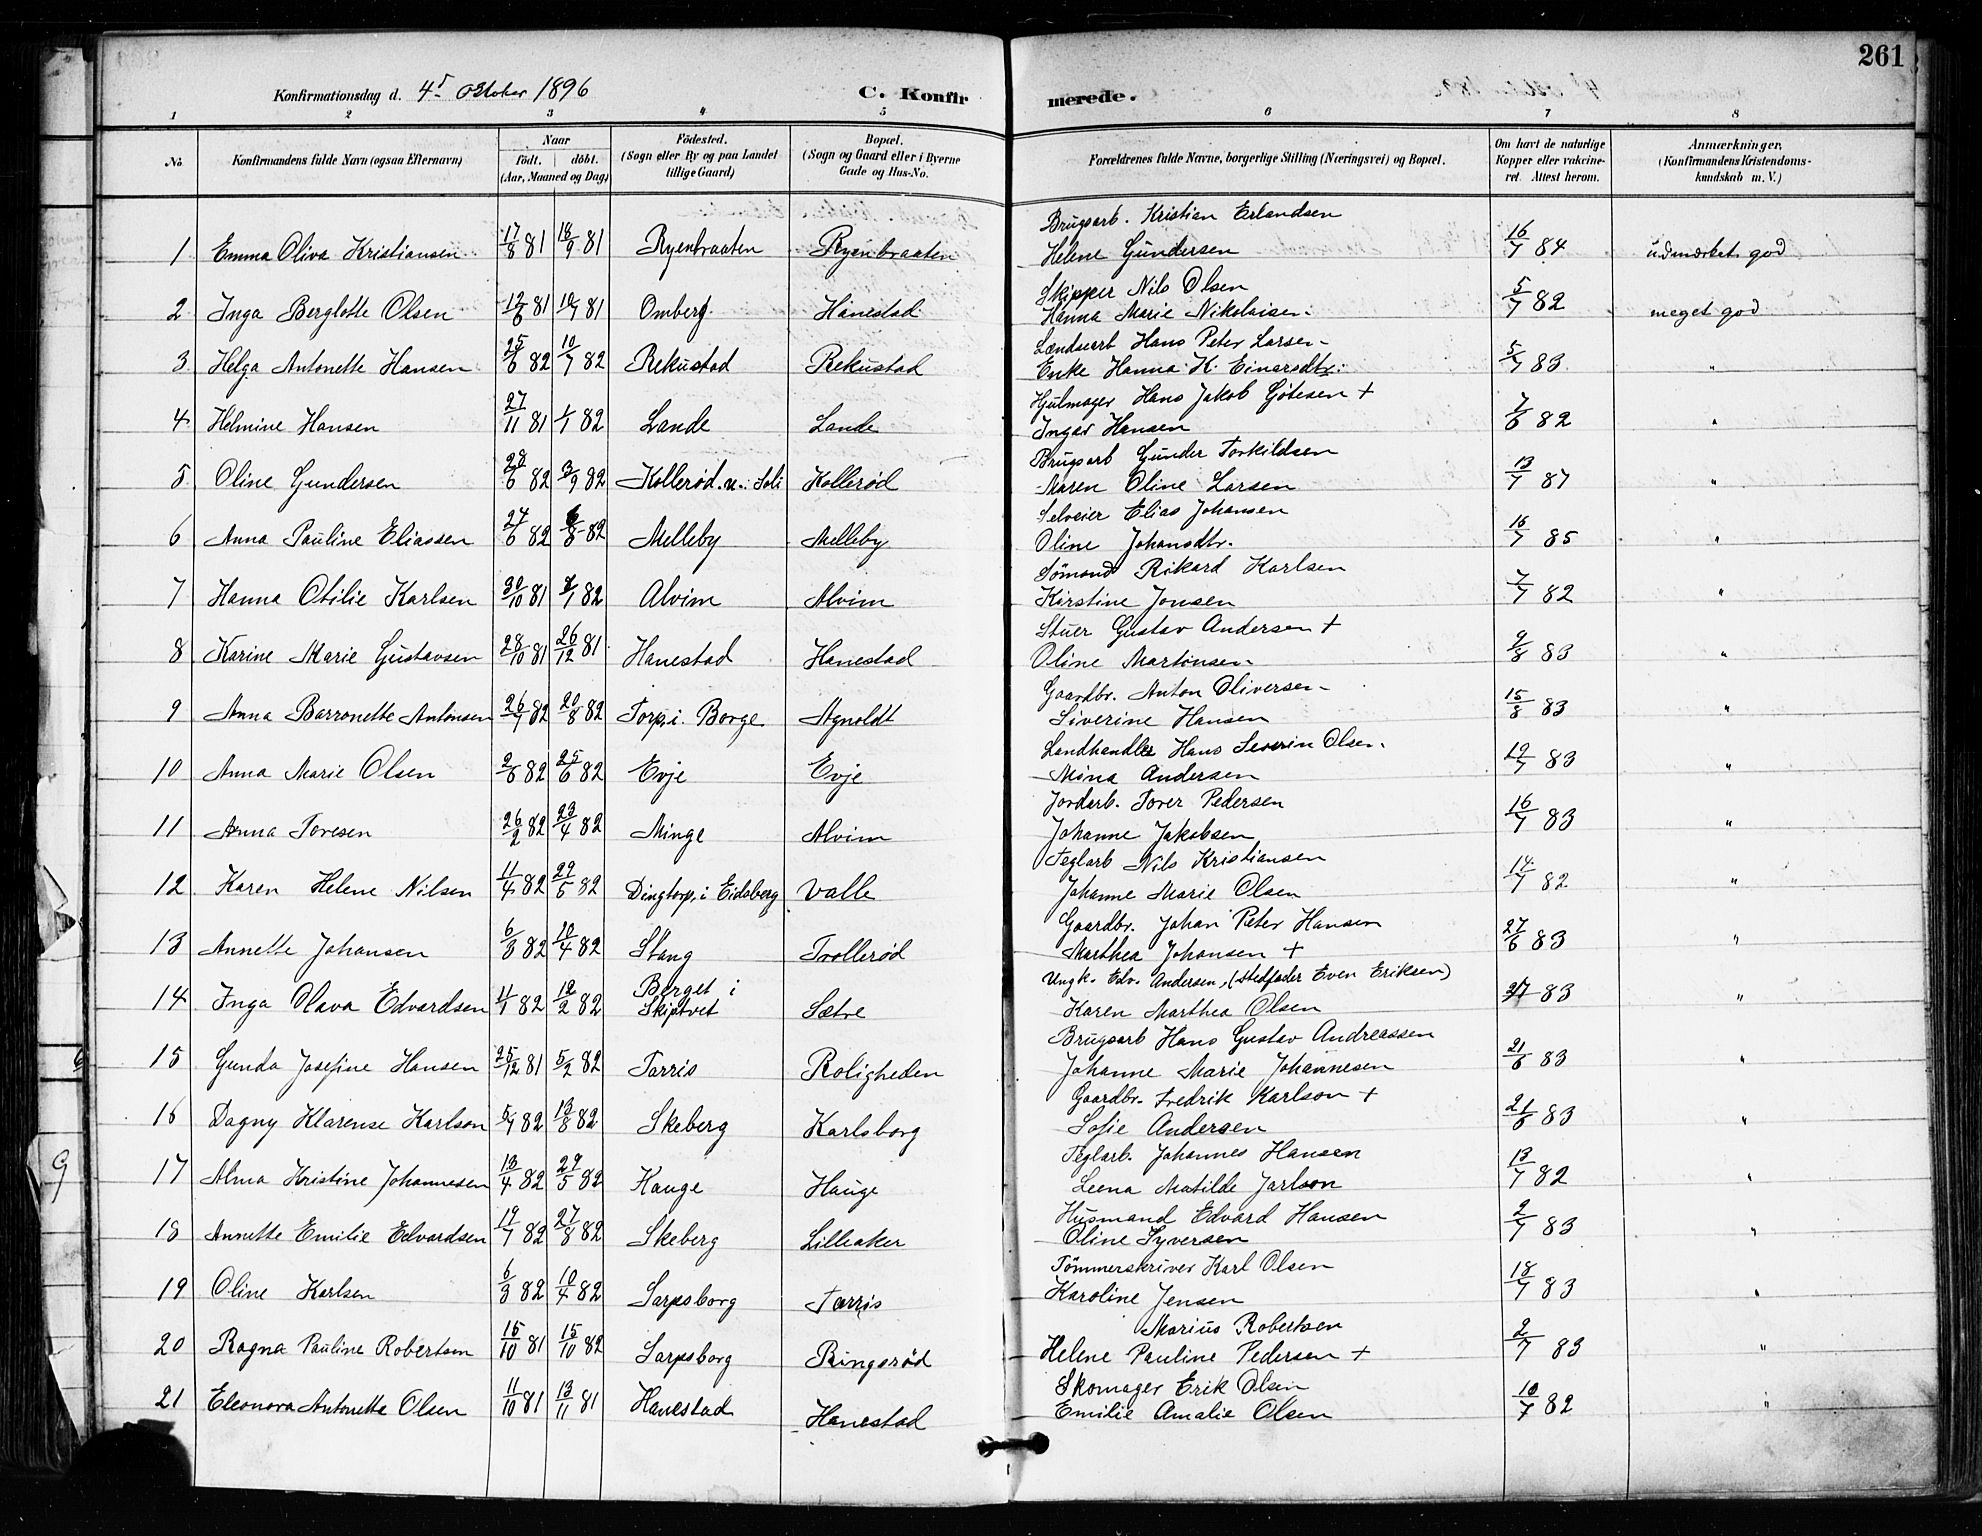 261
Konfirmationsdag d. 4de Oktober 1896
C. Konfirmerede.
1 2 3 4 5 6 7 8
No
Konfirmandens fulde Navn (ogsaa Efternavn)
Naar
födt. döbt.
(Aar, Maaned og Dag)
Födested.
(Sogn eller By og paa Landet
tillige Gaard)
Bopæl.
(Sogn og Gaard eller i Byerne
Gade og Hus-No.
Forældrenes fulde Navne, borgerlige Stilling (Næringsvei) og Bopæl.
Om havt de naturlige
Kopper eller vakcine-
ret. Attest herom.
Anmærkninger.
(Konfirmandens Kristendoms-
kundskab m. V.)
Brugsarb. Kristian Erlandsen
1 Emma Oliva Kristiansen 17/8 81 18/9 81 Ryenbraaten Ryenbraaten Helene Gundersen 16/7 84 udmærket god
Skipper Nils Olsen
2 Inga Berglotte Olsen 12/6 81 10/7 81 Omberg Hanestad Hanna Marie Nikolaisen 5/7 82 meget god
Landsarb Hans Peter Larsen
3 Helga Antonette Hansen 25/6 82 10/7 82 Rekustad Rekustad Enke Hanna K. Einarsdtr. 5/7 83 "
Hjulmager Hans Jakob Götesen +
4 Helmine Hansen 27/11 81 1/1 82 Lande Lande Ingar Hansen 7/6 82 "
Brugsarb Gunder Torkildsen
5 Oline Gundersen 28/6 82 3/9 82 Kollerød u. Soli Kollerød Maren Oline Larsen 13/7 87 "
Selveier Elias Johansen
6 Anna Pauline Eliassen 24/6 82 6/8 82 Melleby Melleby Oline Johansdtr. 16/7 85 "
Sömand Rikard Karlsen
7 Hanna Otilie Karlsen 30/10 81 1/1 82 Alvim Alvim Kirstine Jonsen 7/7 82 "
Stuer Gustav Andersen +
8 Karine Marie Gustavsen 28/10 81 26/12 81 Hanestad Hanestad Oline Martinsen 9/8 83 "
Gaardbr. Anton Oliversen
9 Anna Barronette Antonsen 26/7 82 20/8 82 Torp i Borge Agnoldt Siverine Hansen 15/8 83 "
Landhandler Hans Severin Olsen
10 Anna Marie Olsen 2/6 82 25/6 82 Evje Evje Mina Andersen 12/7 83 "
Jordarb. Torer Pedersen
11 Anna Toresen 26/2 82 23/4 82 Minge Alvim Johanne Jakobsen 16/7 83 "
Teglarb Nils Kristiansen
12 Karen Helene Nilsen 11/4 82 29/5 82 Dingtorp i Eidsberg Valle Johanne Marie Olsen 14/7 82 "
Gaardbr. Johan Peter Hansen
13 Annette Johansen 6/3 82 10/4 82 Stang Trollerød Marthea Johansen + 27/6 83 "
Ungk. Edv. Andersen, (Stedfader Even Eriksen)
14 Inga Olava Edvardsen 4/1 82 12/2 82 Berget i Skiptvet Sætre Karen Marthea Olsen 83 "
Brugsarb Hans Gustav Andreassen
15 Gunda Josefine Hansen 25/12 81 5/2 82 Tarris Roligheden Johanne Marie Johannesen 21/6 83 "
Gaardbr. Fredrik Karlson +
16 Dagny Klarense Karlson 5/7 82 13/8 82 Skeberg Karlsborg Sofie Andersen 21/6 83 "
Teglarb. Johannes Hansen
17 Alma Kristine Johannesen 13/4 82 29/5 82 Hauge Hauge Leena Matilde Jarlson 13/7 82 "
Husmand Edvard Hansen
18 Annette Emilie Edvardsen 19/7 82 27/8 82 Skeberg Lilleaker Oline Syversen 2/7 83 "
Tömmerskriver Karl Olsen
19 Oline Karlsen 6/3 82 10/4 82 Sarpsborg Tarris Karoline Jensen 18/7 83 "
Marius Robertsen
20 Ragna Pauline Robertsen 15/10 81 15/10 82 Sarpsborg Ringsrød Helene Pauline Pedersen + 2/7 83 "
Skomager Erik Olsen
21 Eleonora Antonette Olsen 11/10 81 13/11 81 Hanestad Hanestad Emilie Amalie Olsen 10/7 82 "